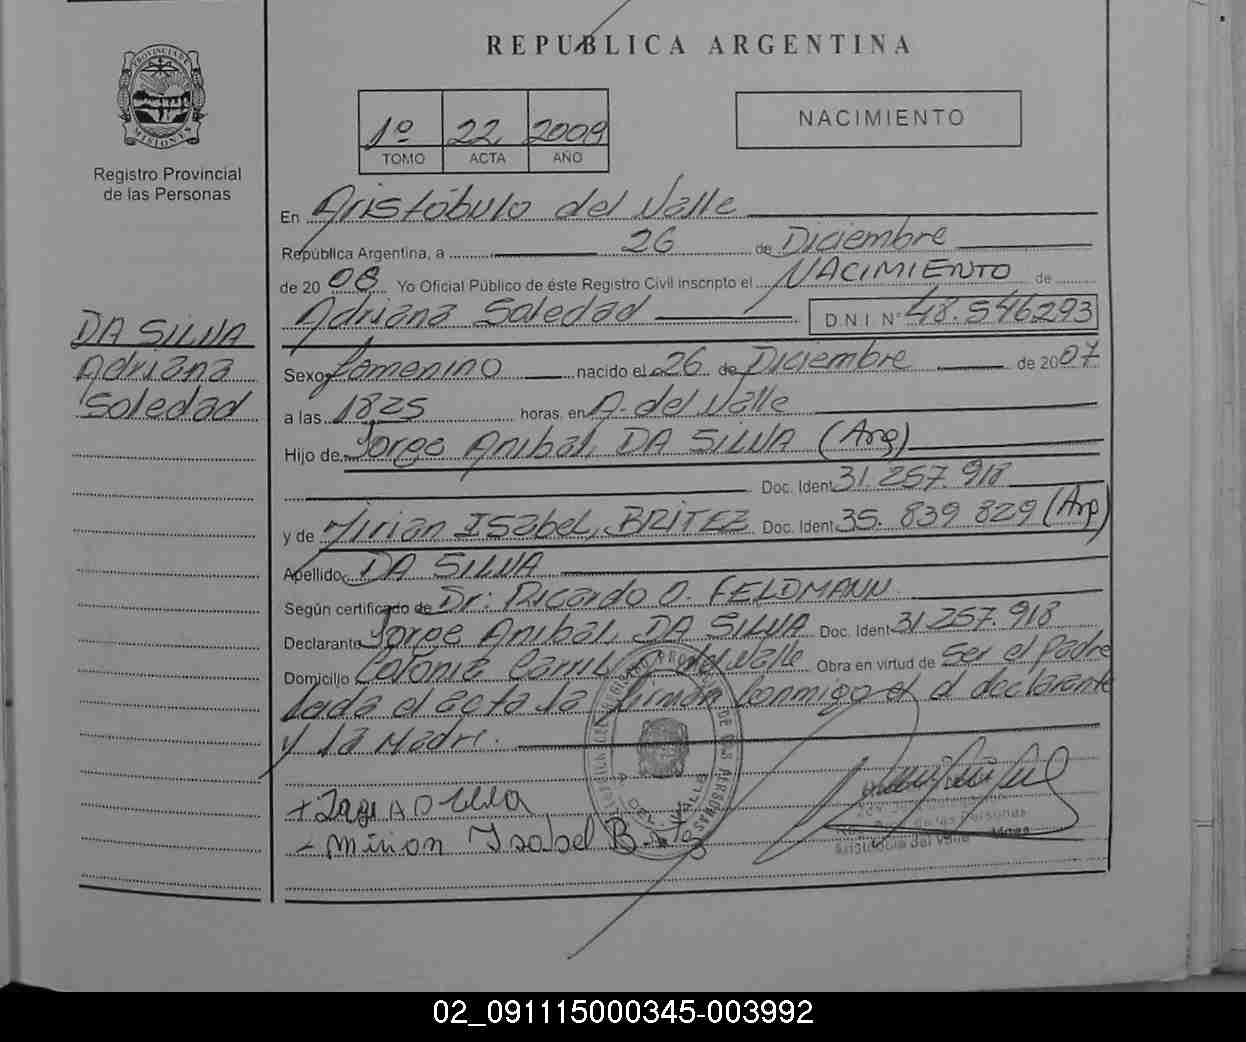 REPUBLICA ARGENTINA
PROVINCIA DE MISIONES
Registro Provincial
de las Personas
1º 22 2008
TOMO ACTA AÑO
NACIMIENTO
En Aristóbulo del Valle
República Argentina, a 26 de Diciembre
de 20 08 Yo Oficial Público de éste Registro Civil inscripto el NACIMIENTO de
Adriana Soledad D.N.I. Nº 48.546.293
DA SILVA
Adriana
Soledad
Sexo femenino nacido el 26 de Diciembre de 2007
a las 1825 horas, en A. del Valle
Hijo de Jorge Anibal, DA SILVA (Arg)
Doc. Ident 31.257.918
y de Mirian ISabel, BRITEZ Doc. Ident 35.839.829 (Arg)
Apellido DA SILVA
Según certificado de Dr: Ricardo O. FELDMANN
Declarante Jorge Anibal, DA SILVA Doc. Ident 31.257.918
Domicilio Colonia del Valle Obra en virtud de Ser el Padre
Leida el acta la firman conmigo el declarante
y la Madre.
Mirion Ysabel
de las Personas
Aristobulo del Valle
02_091115000345-003992